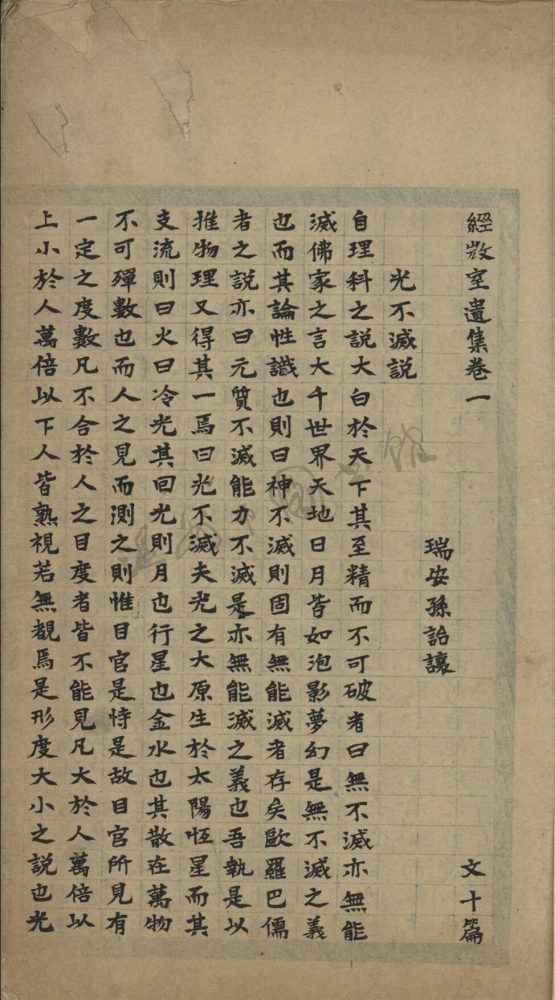 經𢽾室遺集卷一 文十篇
瑞安孫詒讓
光不滅説
自理科之説大白於天下其至精而不可破者曰無不滅亦無能
滅佛家之言大千世界天地日月皆如泡影夢幻是無不滅之義
也而其論性識也則曰神不滅則固有無能滅者存矣歐羅巴儒
者之説亦曰元質不滅能力不滅是亦無能滅之義也吾執是以
推物理又得其一焉曰光不滅夫光之大原生於太陽恆星而其
支流則曰火曰冷光其回光則月也行星也金水也其散在萬物
不可殫數也而人之見而測之則惟目官是恃是故目官所見有
一定之度數凡不合於人之目度者皆不能見凡大於人萬倍以
上小於人萬倍以下人皆熟視若無覩焉是形度大小之説也光